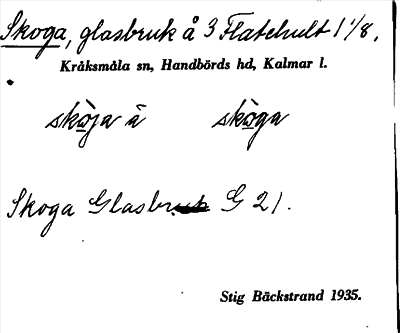 Skoga, glasbruk å 3 Flatehult 1 1/8.
Kråksmåla sn, Handbörds hd, Kalmar l.
skòja ä skòga
Skoga Glasbruk G 21.
Stig Bäckstrand 1935.